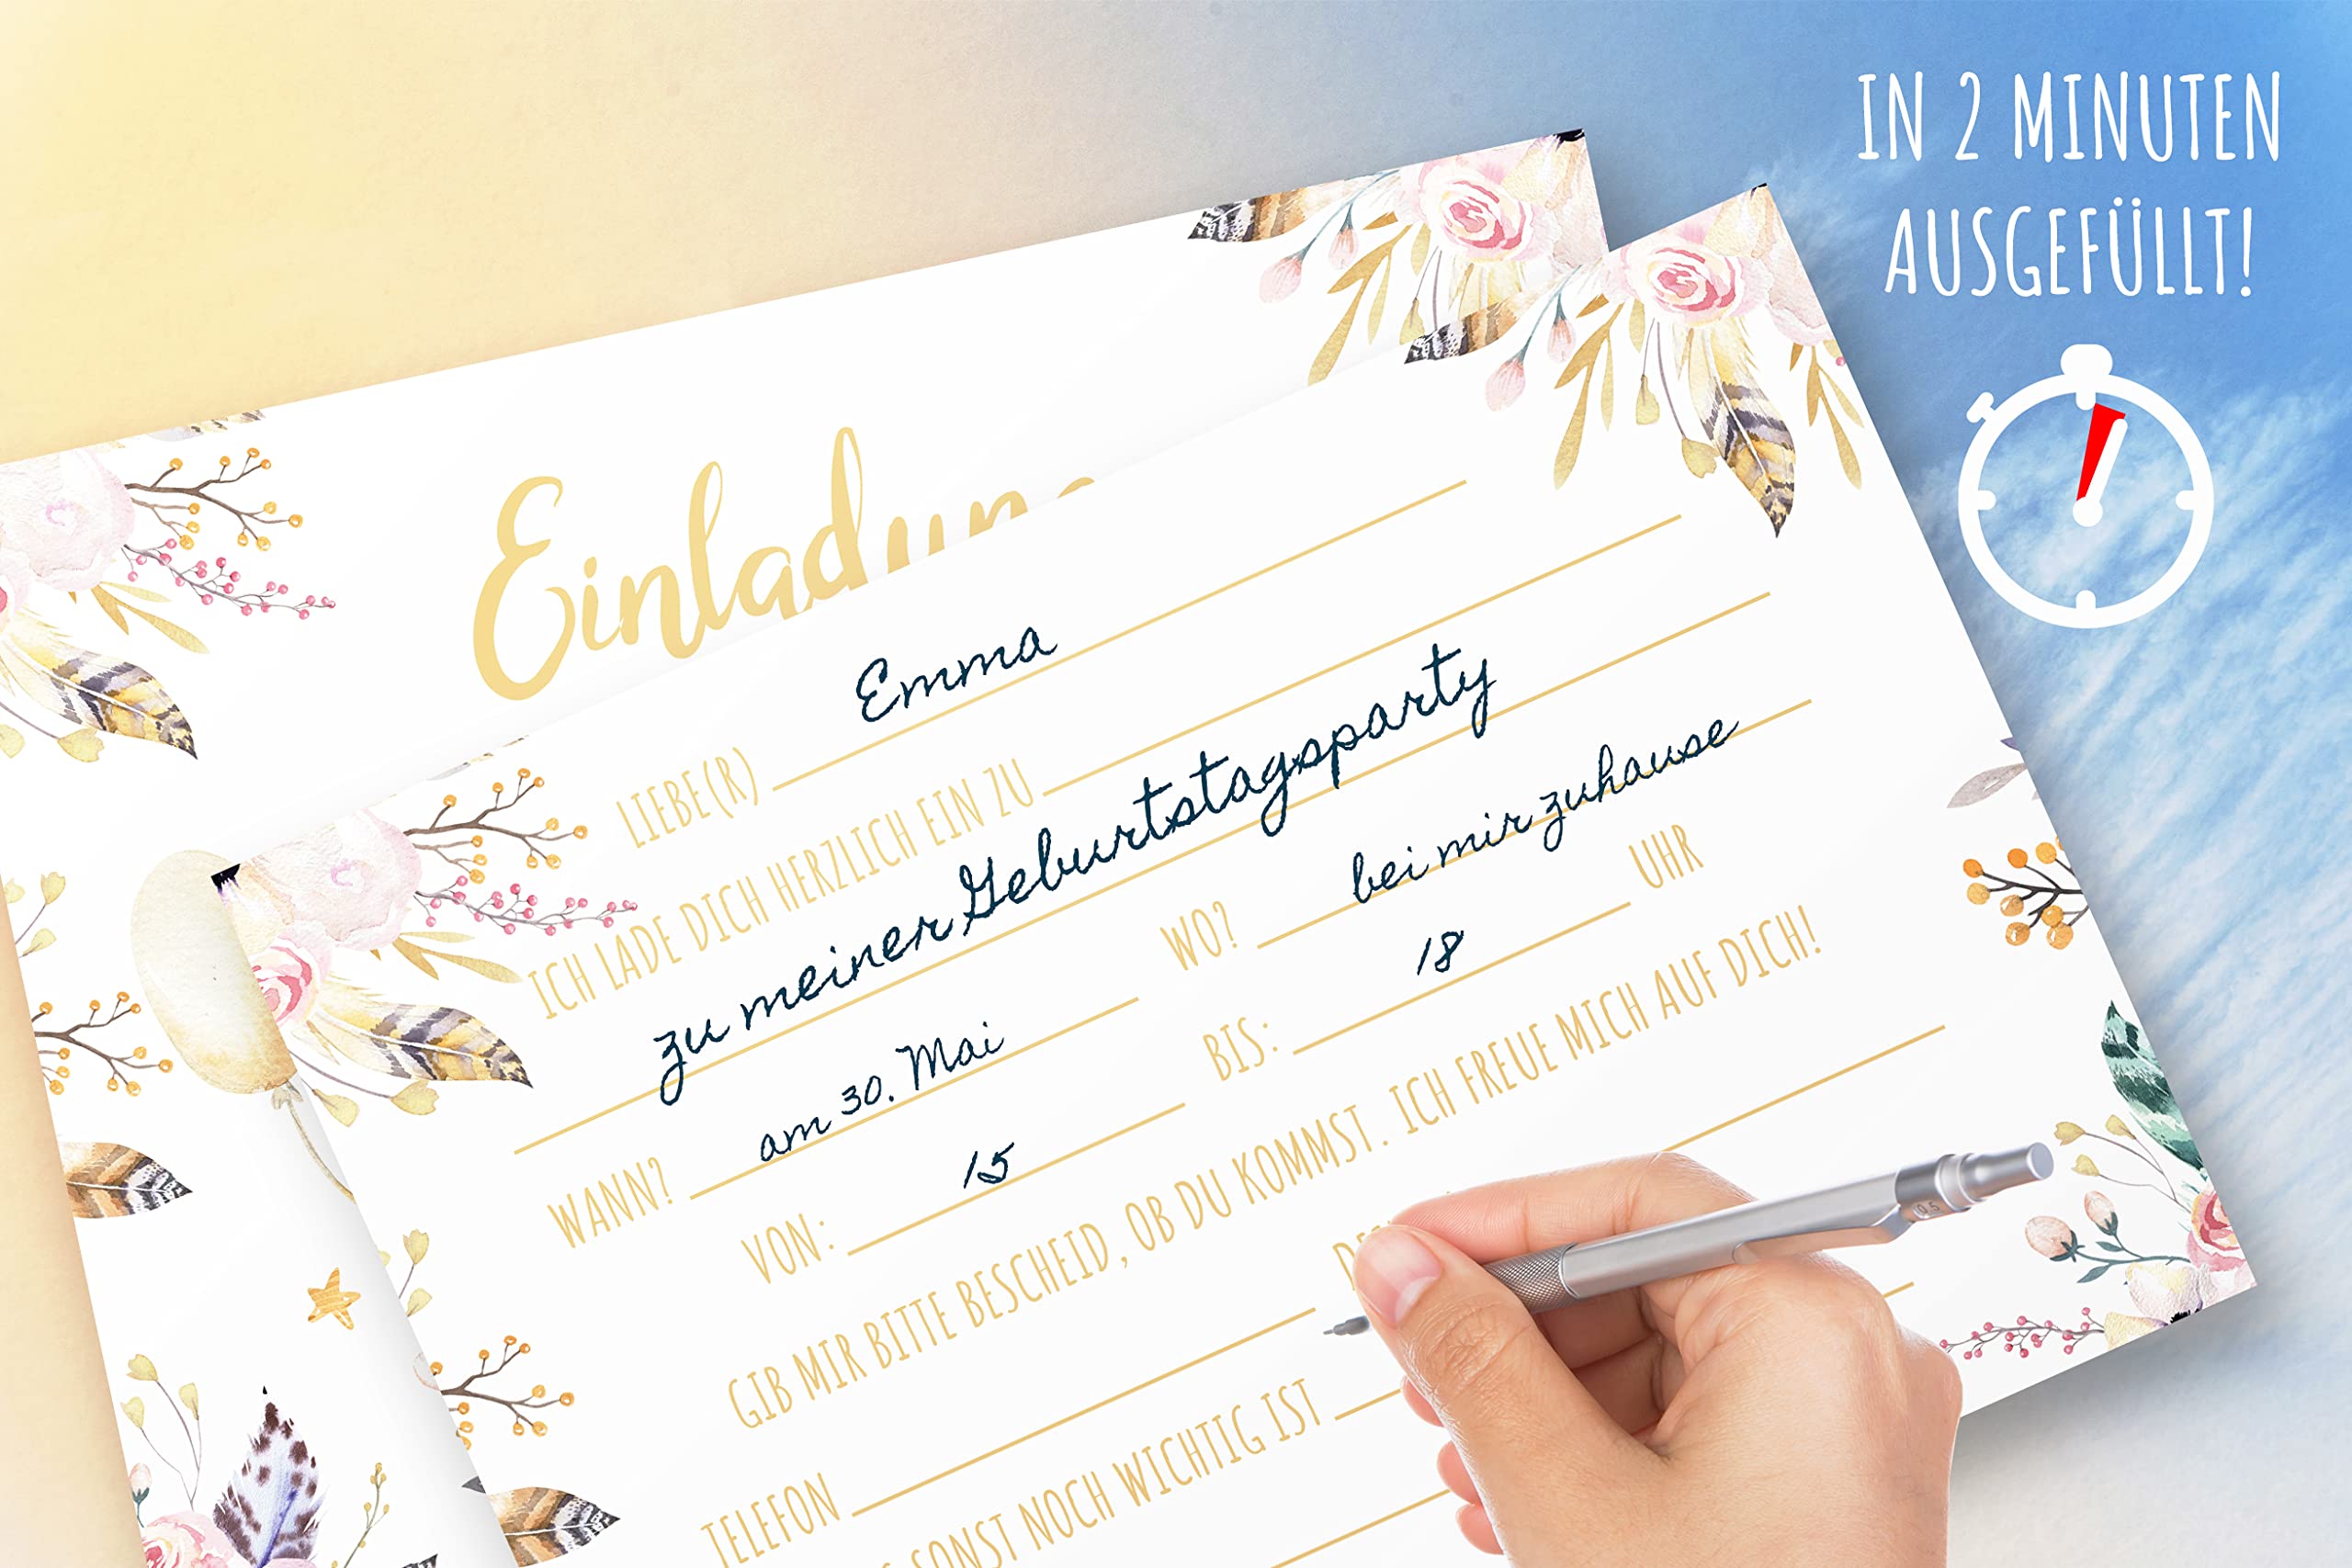 IN 2 MINUTEN
AUSGEFÜLLT!
Einladung
LIEBE(R) Emma
ICH LADE DICH HERZLICH EIN ZU
zu meiner Geburtstagsparty
WANN? am 30. Mai WO? bei mir zuhause
VON: 15 BIS: 18 UHR
GIB MIR BITTE BESCHEID, OB DU KOMMST. ICH FREUE MICH AUF DICH!
TELEFON
SONST NOCH WICHTIG IST
0,5